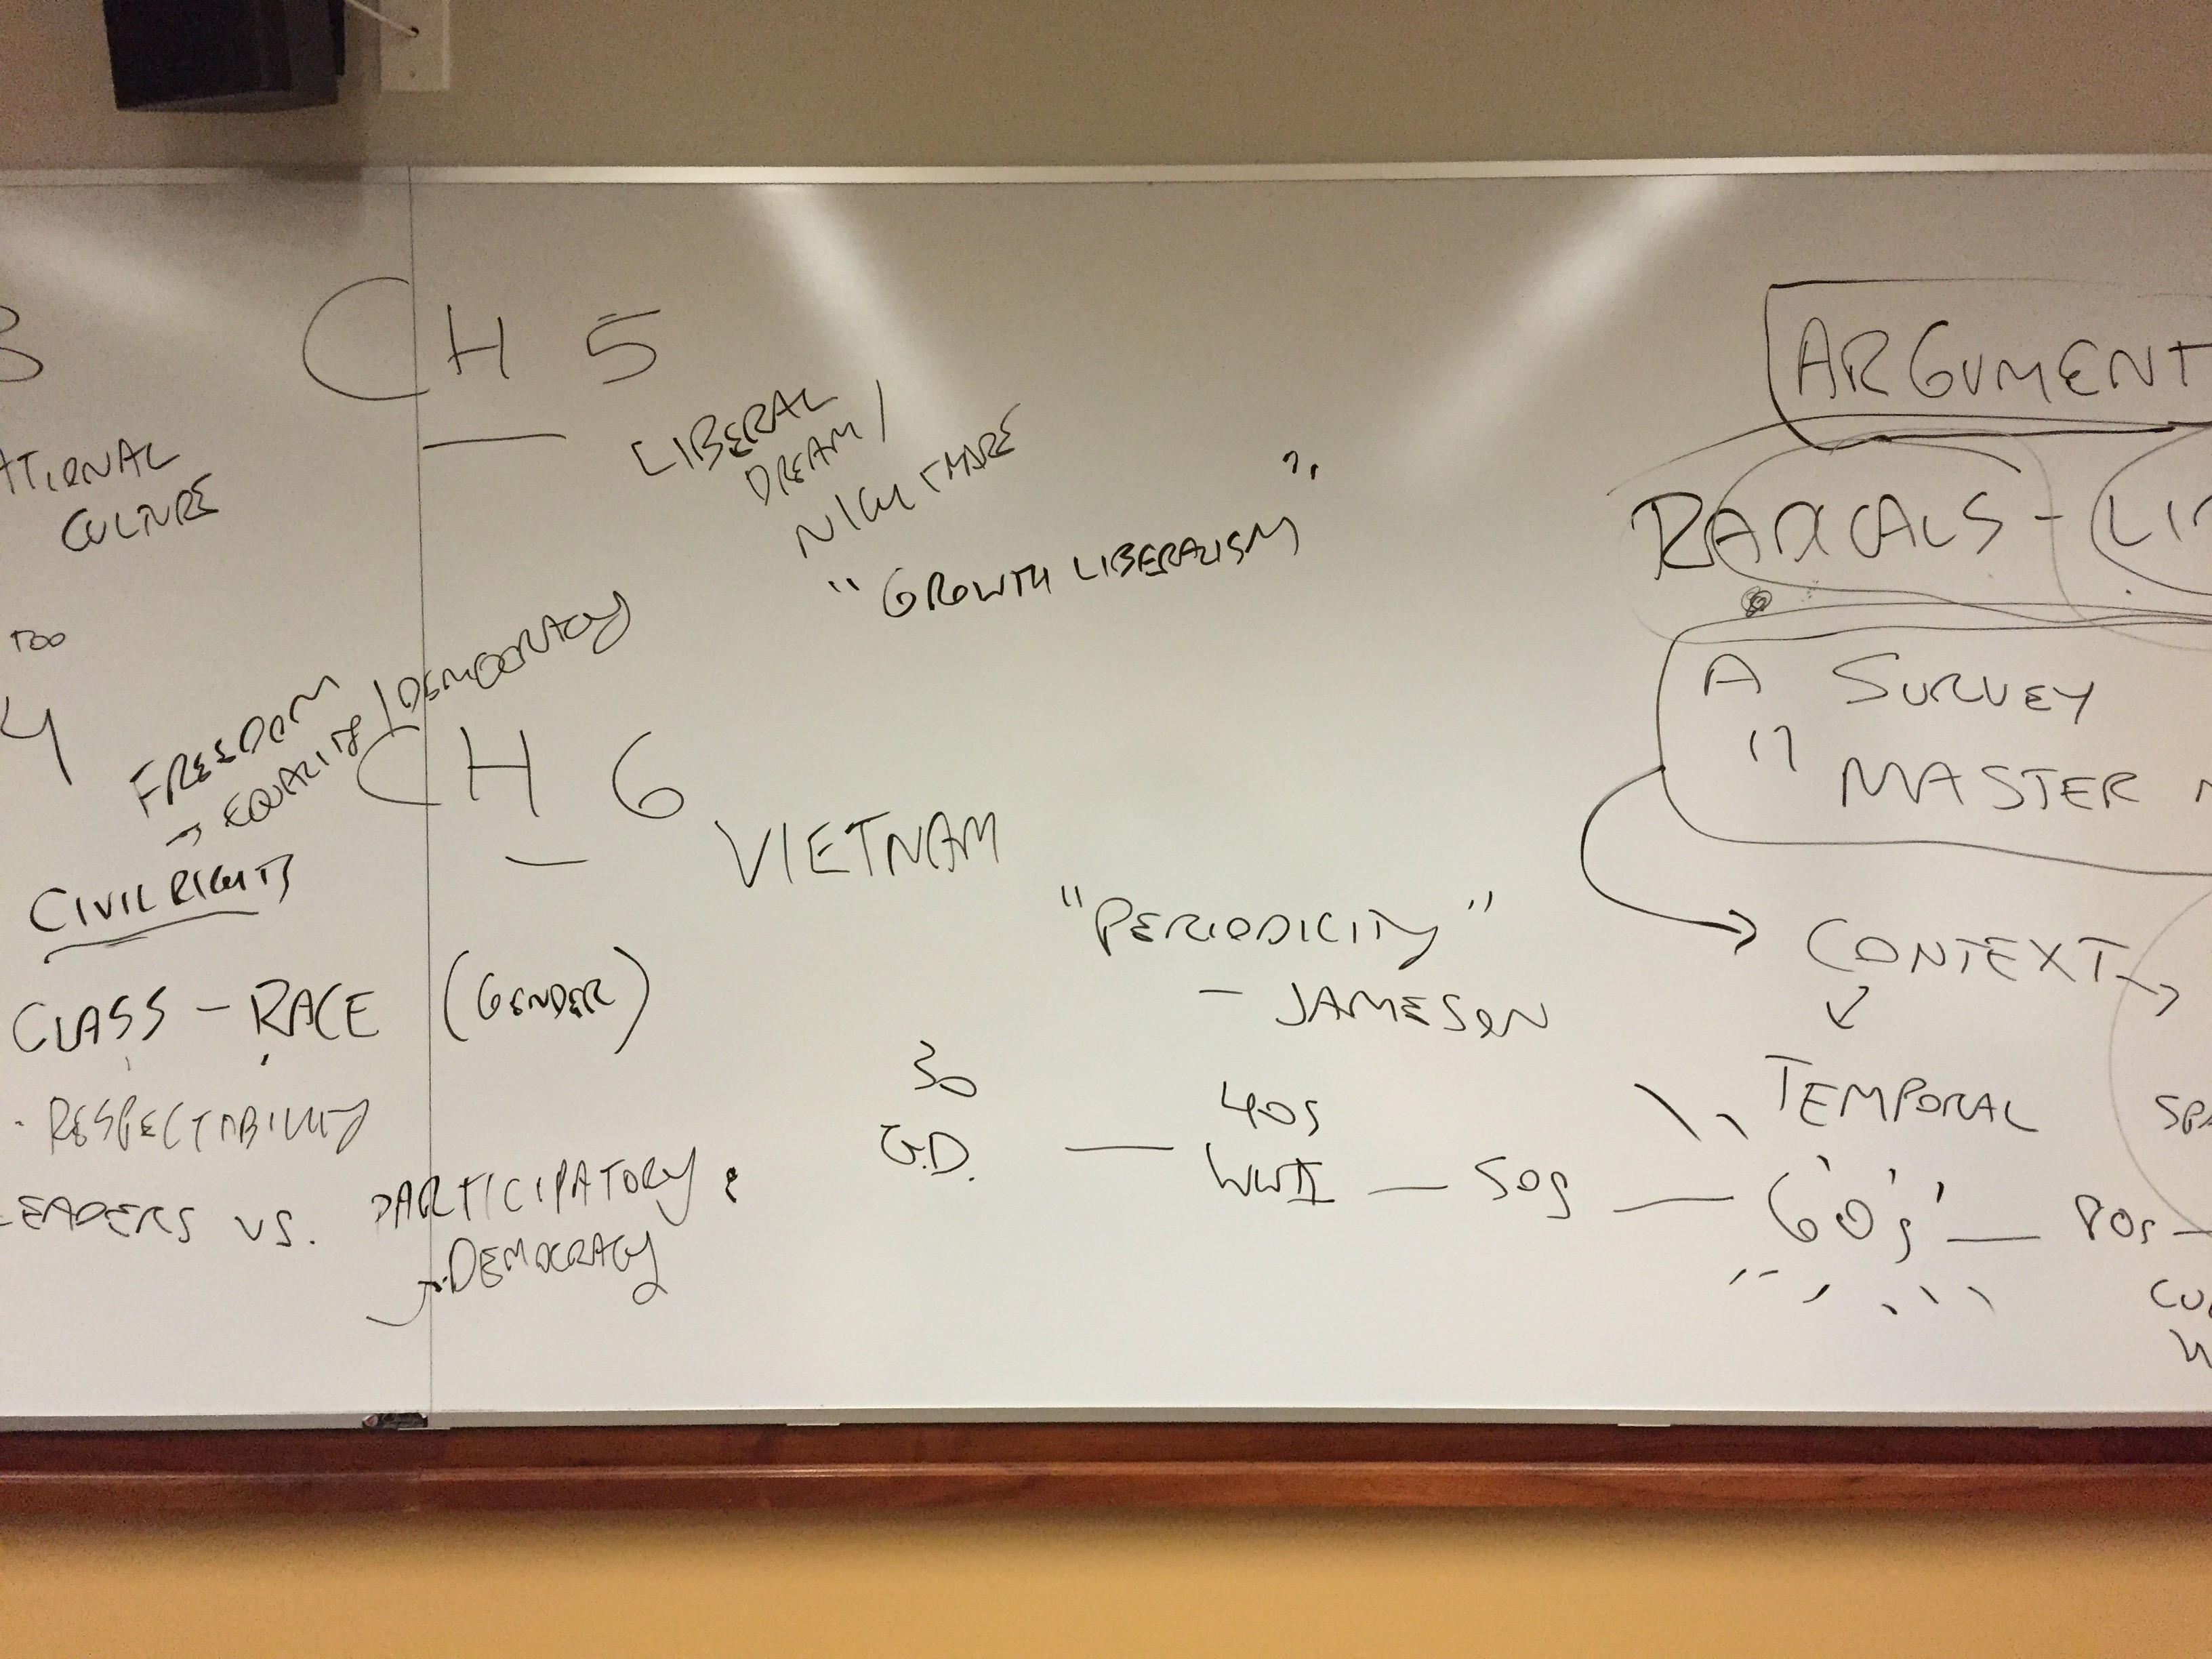 3
ATIONAL
CULTURE
TOO
4
FREEDOM
→ EQUALITY / DEMOCRACY
CIVIL RIGHTS
CLASS - RACE (GENDER)
. RESPECTABILITY
LEADERS VS. PARTICIPATORY
DEMOCRACY
CH 5
LIBERAL
DREAM /
NIGHTMARE
"GROWTH LIBERALISM"
CH 6
VIETNAM
"PERIODICITY"
- JAMESON
30
G.D. — 40s
WWII — 50s — 60's — 80s -
ARGUMENT
RADICALS - LI
A SURVEY
" MASTER
→ CONTEXT →
TEMPORAL
SPA